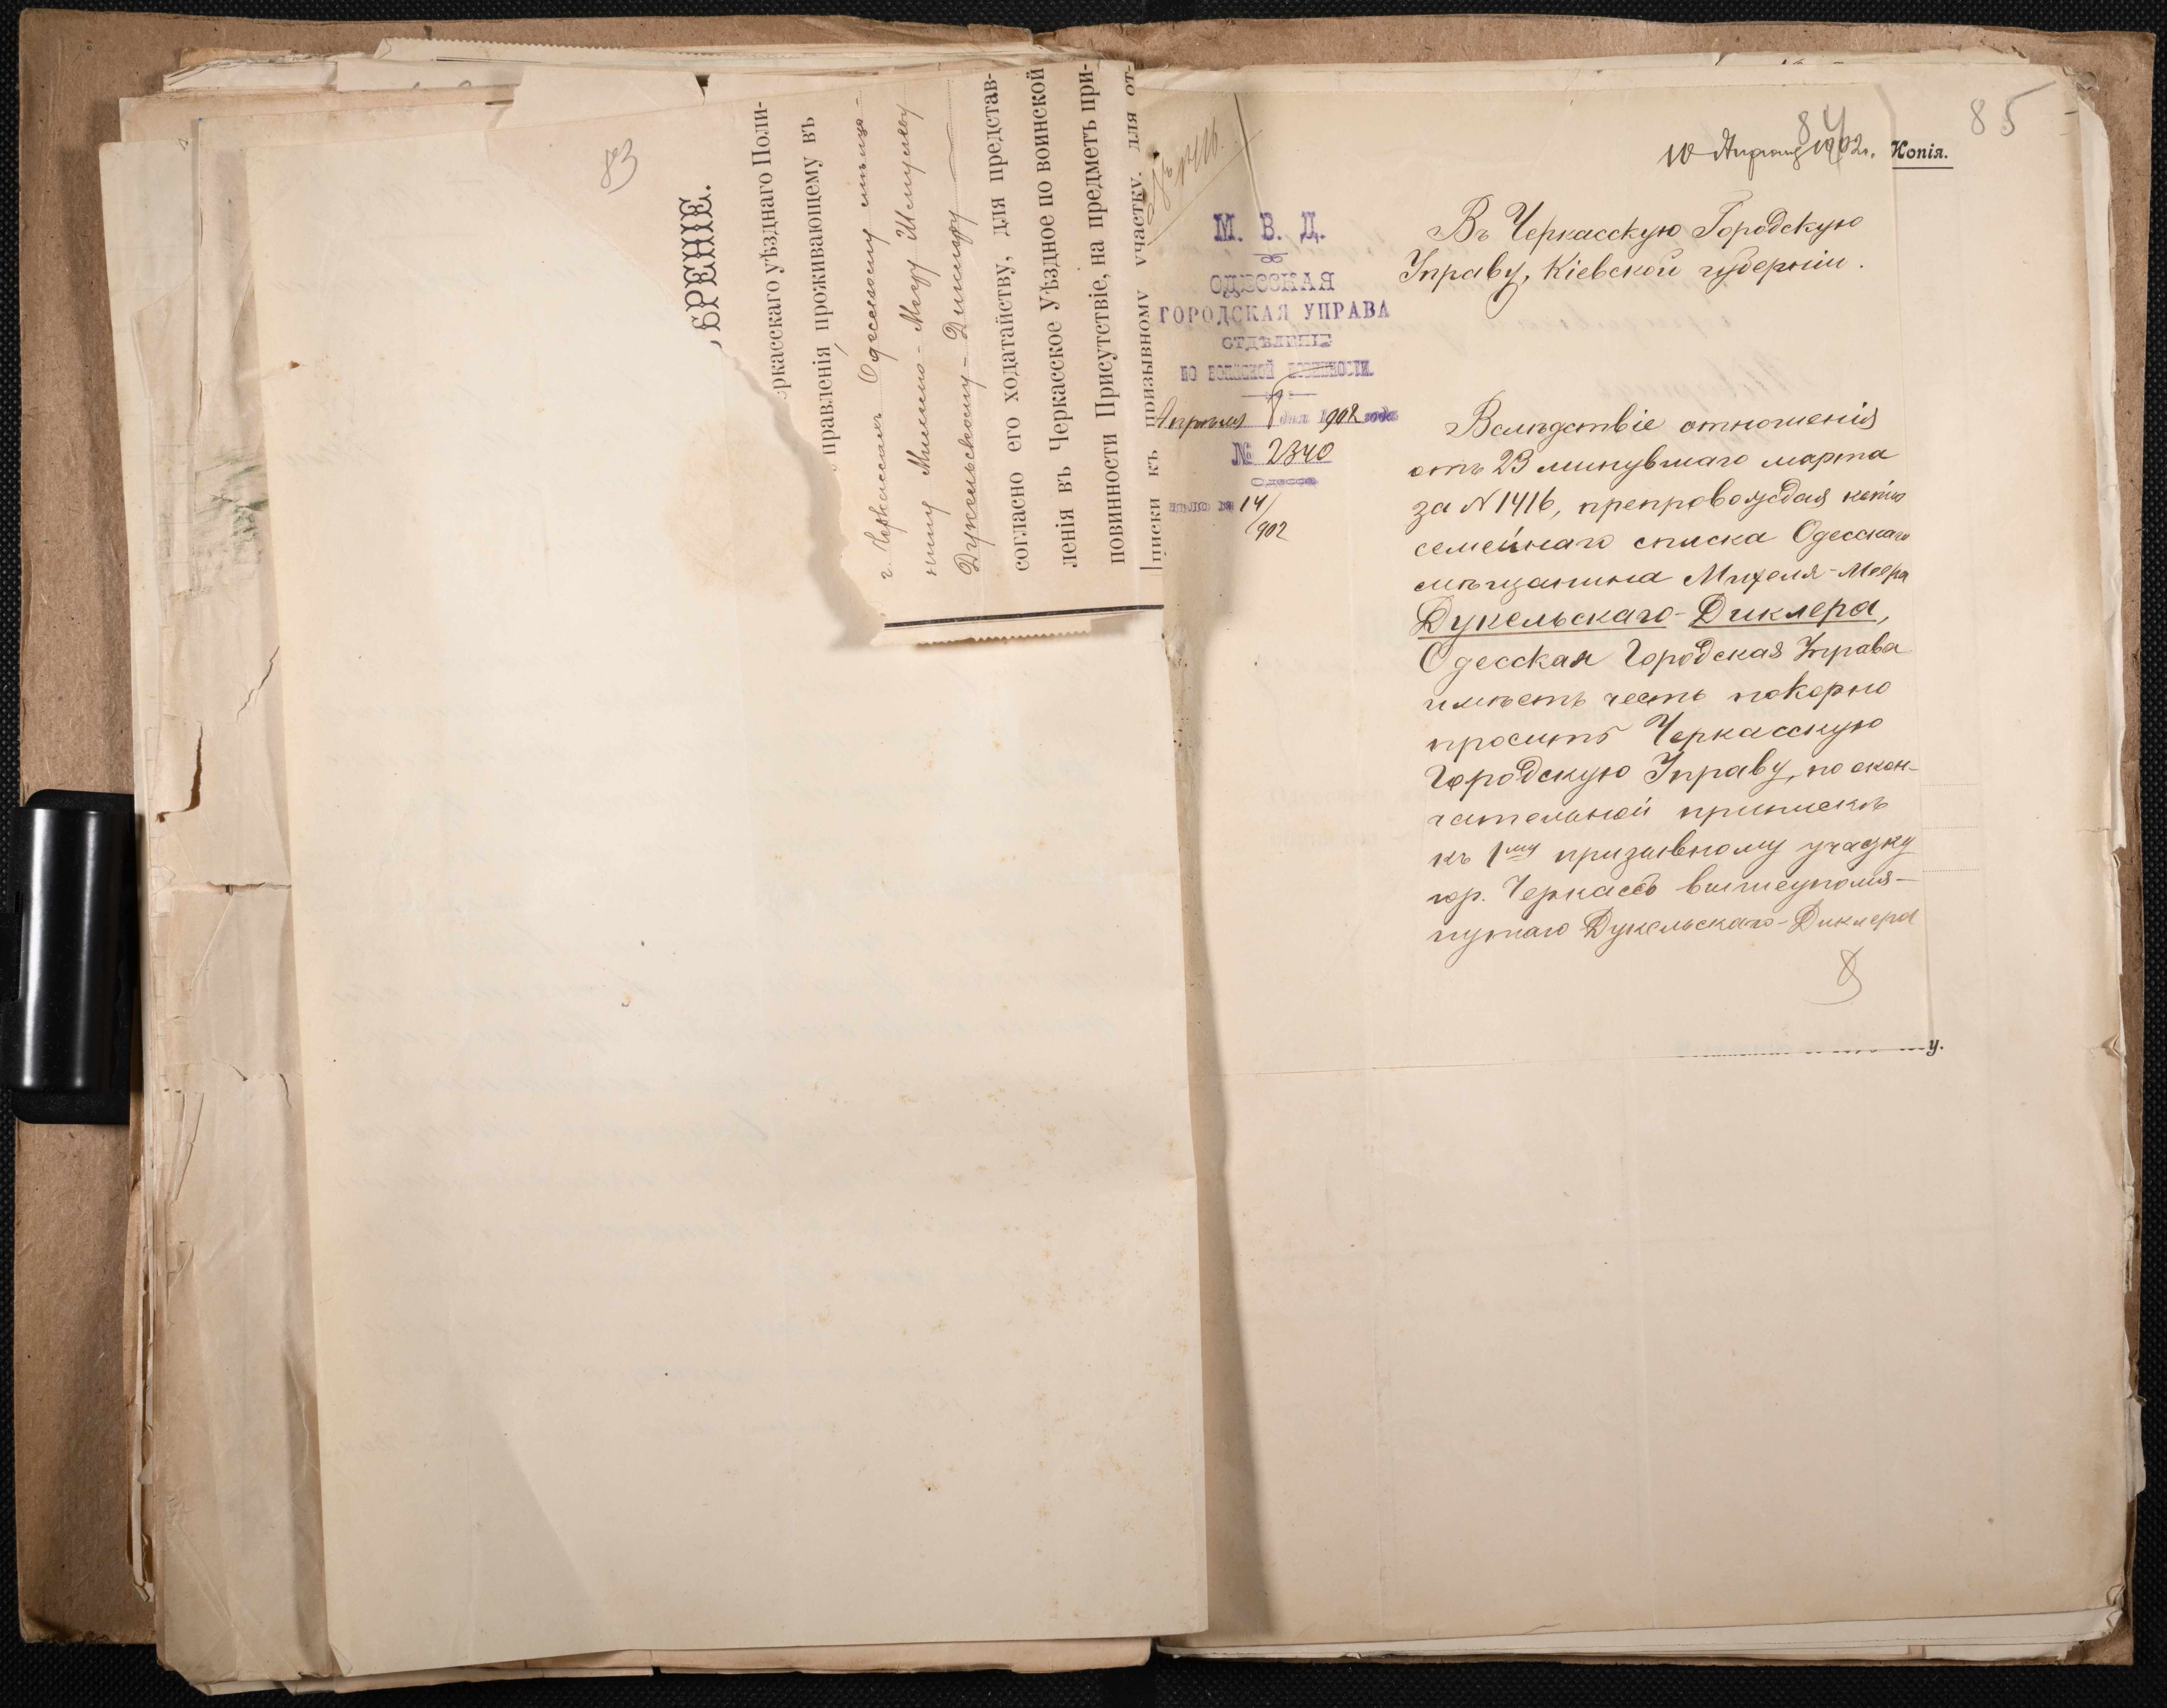 83
БРЕНІЕ.
еркасскаго уѣзднаго Поли-
правленія проживающему въ
г. Черкассахъ Одесскому мѣща-
нину
Дукельскому-
согласно его ходатайству, для представ-
ленія въ Черкасское Уѣздное по воинской
повинности Присутствіе, на предметъ при-
писки къ призывному участку. для от-
М. В. Д.
ОДЕССКАЯ
ГОРОДСКАЯ УПРАВА
ОТДѢЛЕНІЕ
ПО ВОИНСКОЙ ПОВИННОСТИ.
Апрѣля 8 дня 1902 года
№ 2340
Одесса
дѣло № 14/902
85
84
10 Апрѣля 1902 г.
Копія.
Въ Черкасскую Городскую
Управу, Кіевской губерніи.
Вслѣдствіе отношенія
отъ 23 минувшаго марта
за N 1416, препровождая копію
семейнаго списка Одесскаго
мѣщанина Михеля-Меера
Дукельскаго-Диклера,
Одесская Городская Управа
имѣетъ честь покорно
просить Черкасскую
Городскую Управу, по окон-
чательной припискѣ
къ 1му призывному участку
гор. Черкассъ вышеупомя-
нутаго Дукельскаго-Диклера
у.